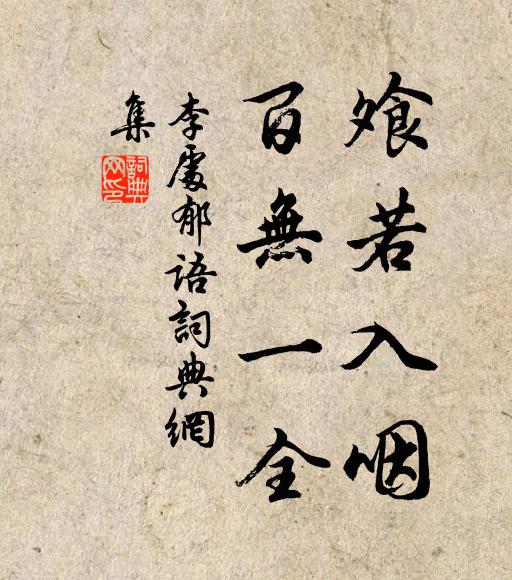 飧若入咽
百無一全
李處郁語詞典網
集
詞典網印